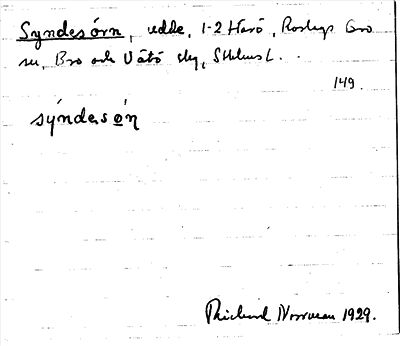 Syndesörn, udde, 1-2 Harö, Roslags Bro
sn, Bro och Vätö skg, Sthlms L.
149.
sýndesǿn
Richard Norrman 1929.